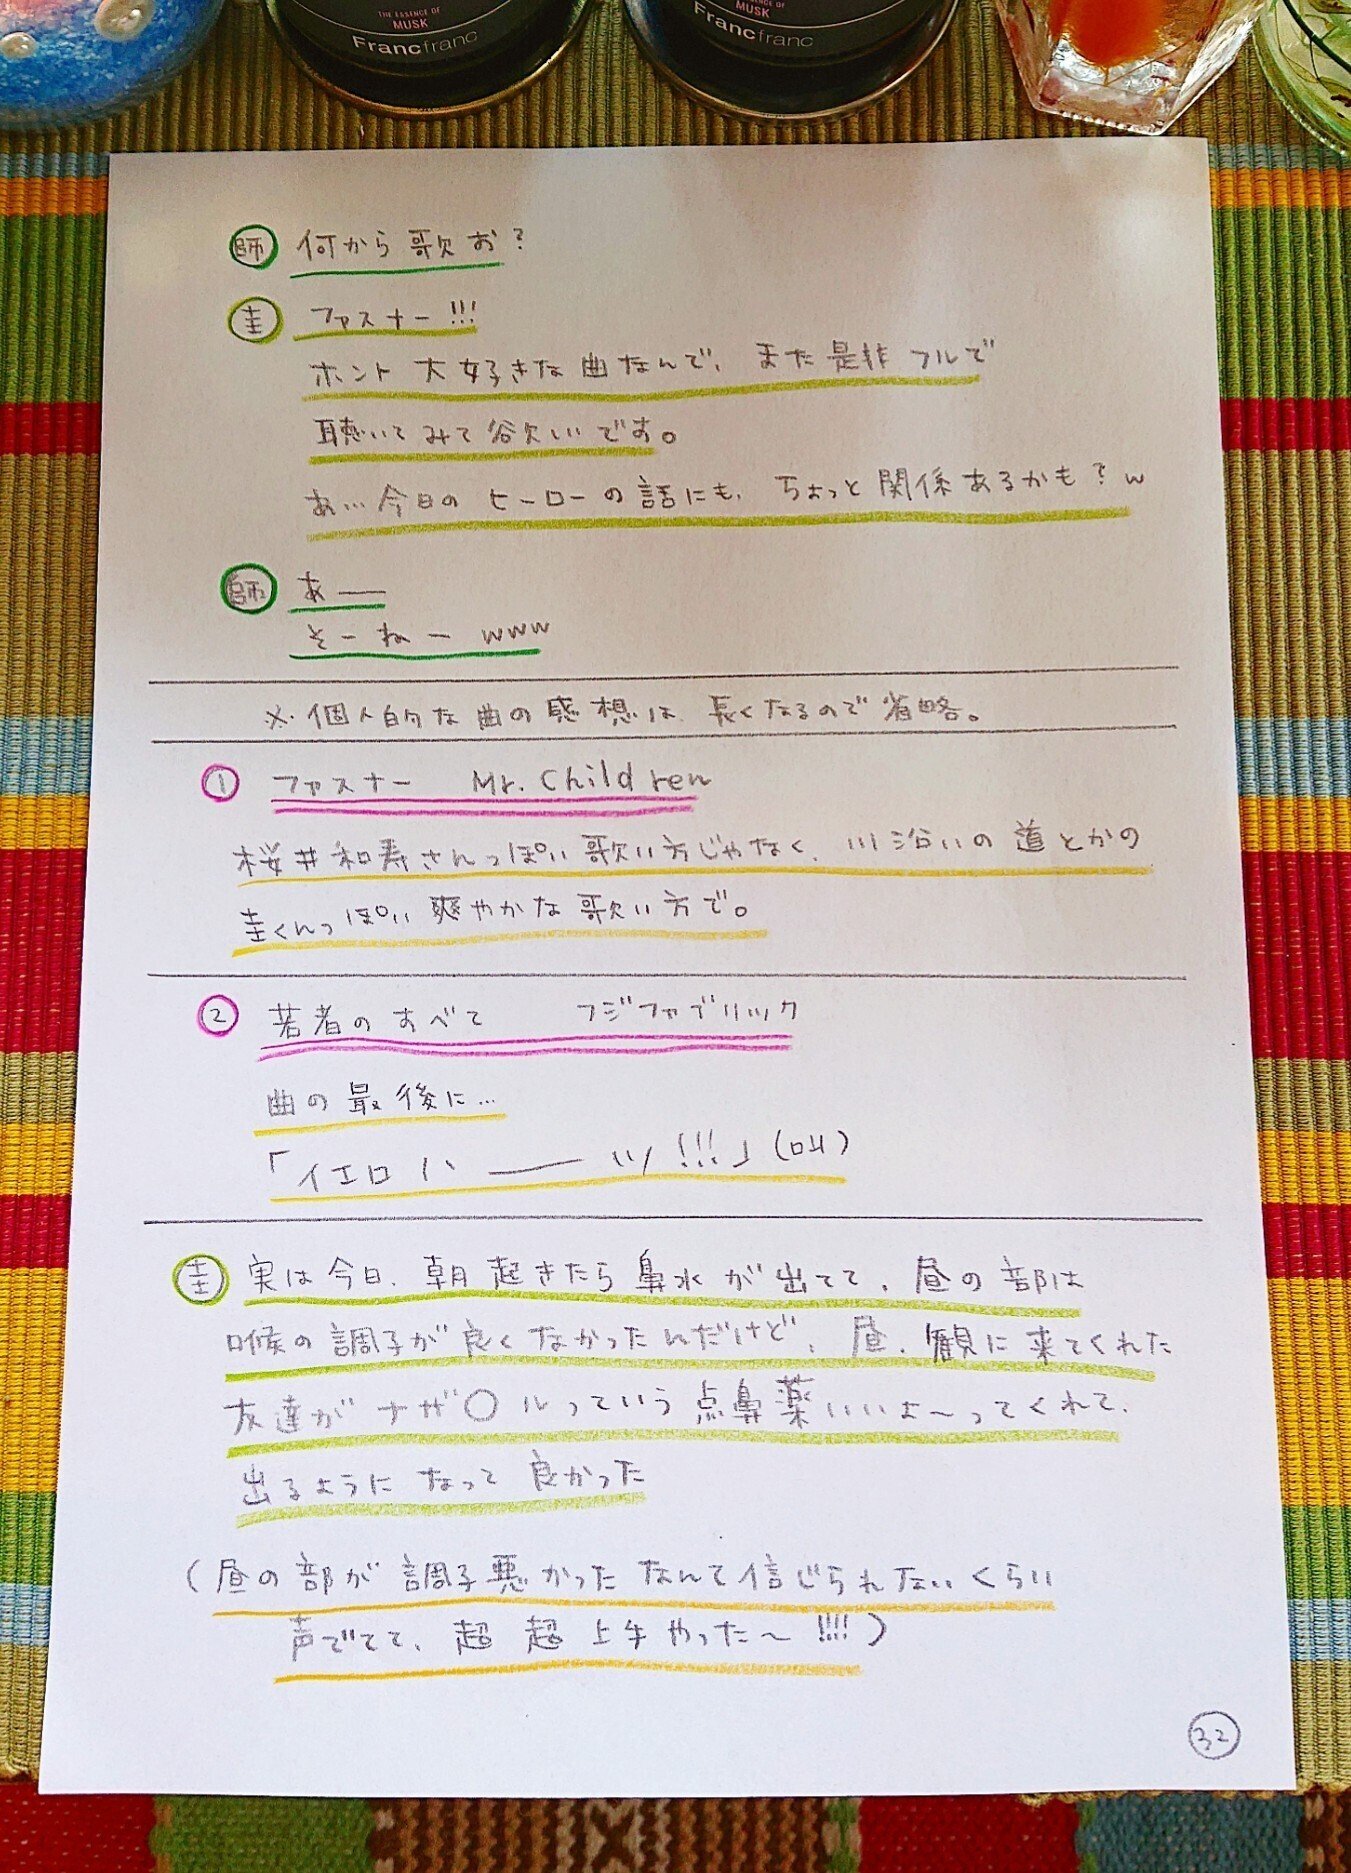 THE ESSENCE OF
MUSK
Francfranc
MUSK
Francfranc
師 何から歌お?
圭 ファスナー!!!
ホント大好きな曲なんで、また是非フルで
聴いてみて欲しいです。
あ…今日のヒーローの話にも、ちょっと関係あるかも?w
師 あー
そーねーwww
※個人的な曲の感想は、長くなるので省略。
① ファスナー Mr.Children
桜井和寿さんっぽい歌い方じゃなく、川沿いの道とかの
圭くんっぽい爽やかな歌い方で。
② 若者のすべて フジファブリック
曲の最後に…
「イエロハーーッ!!!」(叫)
圭 実は今日、朝起きたら鼻水が出てて、昼の部は
喉の調子が良くなかったんだけど、昼、観に来てくれた
友達がナザ〇ルっていう点鼻薬いいよ〜ってくれて、
出るようになって良かった
(昼の部が調子悪かったなんて信じられないくらい
声でてて、超超上手やった〜!!!!)
32